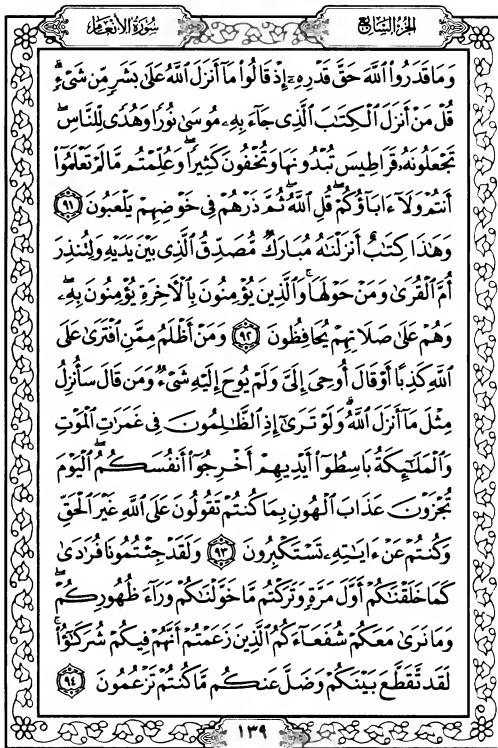 سُورَةُ الأَنْعَامِ الجُزْءُ السَّابِعُ
وَمَا قَدَرُوا۟ ٱللَّهَ حَقَّ قَدْرِهِۦٓ إِذْ قَالُوا۟ مَآ أَنزَلَ ٱللَّهُ عَلَىٰ بَشَرٍ مِّن شَىْءٍ ۗ
قُلْ مَنْ أَنزَلَ ٱلْكِتَٰبَ ٱلَّذِى جَآءَ بِهِۦ مُوسَىٰ نُورًا وَهُدًى لِّلنَّاسِ ۖ
تَجْعَلُونَهُۥ قَرَاطِيسَ تُبْدُونَهَا وَتُخْفُونَ كَثِيرًا ۖ وَعُلِّمْتُم مَّا لَمْ تَعْلَمُوٓا۟
أَنتُمْ وَلَآ ءَابَآؤُكُمْ ۖ قُلِ ٱللَّهُ ۖ ثُمَّ ذَرْهُمْ فِى خَوْضِهِمْ يَلْعَبُونَ ٩١
وَهَٰذَا كِتَٰبٌ أَنزَلْنَٰهُ مُبَارَكٌ مُّصَدِّقُ ٱلَّذِى بَيْنَ يَدَيْهِ وَلِتُنذِرَ
أُمَّ ٱلْقُرَىٰ وَمَنْ حَوْلَهَا ۚ وَٱلَّذِينَ يُؤْمِنُونَ بِٱلْءَاخِرَةِ يُؤْمِنُونَ بِهِۦ ۖ
وَهُمْ عَلَىٰ صَلَاتِهِمْ يُحَافِظُونَ ٩٢ وَمَنْ أَظْلَمُ مِمَّنِ ٱفْتَرَىٰ عَلَى
ٱللَّهِ كَذِبًا أَوْ قَالَ أُوحِىَ إِلَىَّ وَلَمْ يُوحَ إِلَيْهِ شَىْءٌ وَمَن قَالَ سَأُنزِلُ
مِثْلَ مَآ أَنزَلَ ٱللَّهُ ۗ وَلَوْ تَرَىٰٓ إِذِ ٱلظَّٰلِمُونَ فِى غَمَرَٰتِ ٱلْمَوْتِ
وَٱلْمَلَٰٓئِكَةُ بَاسِطُوٓا۟ أَيْدِيهِمْ أَخْرِجُوٓا۟ أَنفُسَكُمُ ۖ ٱلْيَوْمَ
تُجْزَوْنَ عَذَابَ ٱلْهُونِ بِمَا كُنتُمْ تَقُولُونَ عَلَى ٱللَّهِ غَيْرَ ٱلْحَقِّ
وَكُنتُمْ عَنْ ءَايَٰتِهِۦ تَسْتَكْبِرُونَ ٩٣ وَلَقَدْ جِئْتُمُونَا فُرَٰدَىٰ
كَمَا خَلَقْنَٰكُمْ أَوَّلَ مَرَّةٍ وَتَرَكْتُم مَّا خَوَّلْنَٰكُمْ وَرَآءَ ظُهُورِكُمْ ۖ
وَمَا نَرَىٰ مَعَكُمْ شُفَعَآءَكُمُ ٱلَّذِينَ زَعَمْتُمْ أَنَّهُمْ فِيكُمْ شُرَكَٰٓؤُا۟ ۚ
لَقَد تَّقَطَّعَ بَيْنَكُمْ وَضَلَّ عَنكُم مَّا كُنتُمْ تَزْعُمُونَ ٩٤
١٣٩